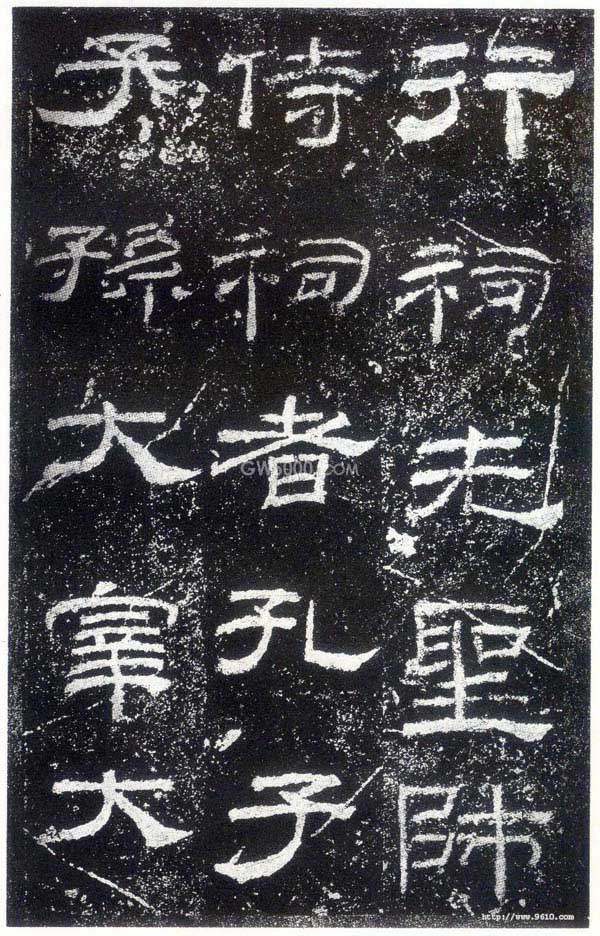 行祠先聖師
侍祠者孔子
子孫大宰大
http://www.9610.com